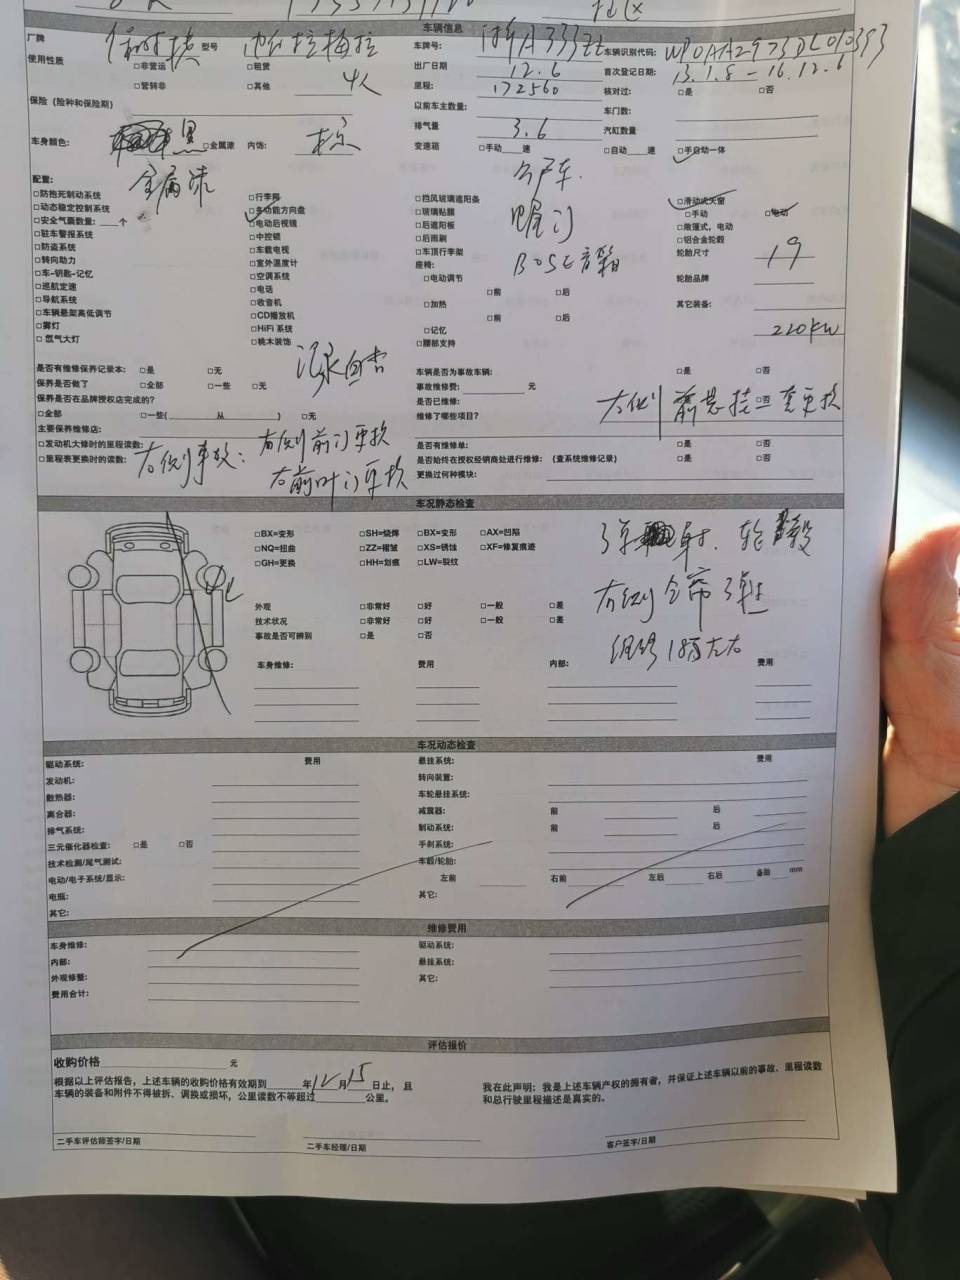 车辆信息
厂牌 保时捷 型号 帕拉梅拉 车牌号: 浙A333ZZ 车辆识别代码:
使用性质 □非营运 □租赁 出厂日期 12.6 首次登记日期: 13.1.8 - 16.12.6
□营转非 □其他 里程: 172560 核对过: □是 □否
保险（险种和保险期） 以前车主数量: 车门数:
排气量 3.6 汽缸数量
车身颜色: 黑 □金属漆 内饰: 棕 变速箱 □手动 速 □自动 速 □手自动一体
配置: 金属漆
□防抱死制动系统 □行李架 □挡风玻璃遮阳条 □滑动式天窗
□动态稳定控制系统 □多功能方向盘 □玻璃贴膜 □手动 □电动
□安全气囊数量: 个 □电动后视镜 □后遮阳板 □敞篷式，电动
□驻车警报系统 □中控锁 □后雨刷 □铝合金轮毂
□防盗系统 □车载电视 □车顶行李架 BOSE音箱 轮胎尺寸 19
□转向助力 □室外温度计 座椅:
□车-钥匙-记忆 □空调系统 □电动调节 轮胎品牌
□巡航定速 □电话 □前 □后
□导航系统 □收音机 □加热 其它装备:
□车辆悬架高低调节 □CD播放机 □前 □后
□雾灯 □HiFi 系统 □记忆 220kw
□氙气大灯 □桃木装饰 □腰部支持
是否有维修保养记录本: □是 □无 车辆是否为事故车辆: □是 □否
保养是否做了 □全部 □一些 □无 事故维修费: 元
保养是否在品牌授权店完成的? 是否已维修: □否
□全部 □一些( 从 ) □无 维修了哪些项目? 右侧前悬挂一套更换
主要保养维修店:
□发动机大修时的里程读数: 是否有维修单: □是 □否
□里程表更换时的读数: 右侧事故: 右侧前门更换 是否始终在授权经销商处进行维修: (查系统维修记录) □是 □否
右前叶门更换 更换过何种模块:
车况静态检查
□BX=变形 □SH=烧焊 □BX=变形 □AX=凹陷
□NQ=扭曲 □ZZ=褶皱 □XS=锈蚀 □XF=修复痕迹
□GH=更换 □HH=划痕 □LW=裂纹
外观 □非常好 □好 □一般 □差
技术状况 □非常好 □好 □一般 □差
事故是否可辨别 □是 □否
车身维修: 费用 内部: 费用
车况动态检查
驱动系统: 费用 悬挂系统: 费用
发动机: 转向装置:
散热器: 车轮悬挂系统:
离合器: 减震器: 前 后
排气系统: 制动系统: 前 后
三元催化器检查: □是 □否 手刹系统:
技术检测/尾气测试: 车毂/轮胎:
电动/电子系统/显示: 左前 右前 左后 右后 备胎 mm
电瓶: 其它:
其它:
维修费用
车身维修: 驱动系统:
内部: 悬挂系统:
外观修整: 其它:
费用合计:
评估报价
收购价格 元
根据以上评估报告，上述车辆的收购价格有效期到 年12月15日止，且
车辆的装备和附件不得被拆、调换或损坏，公里读数不等超过 公里。
我在此声明: 我是上述车辆产权的拥有者，并保证上述车辆以前的事故、里程读数
和总行驶里程描述是真实的。
二手车评估师签字/日期 二手车经理/日期 客户签字/日期